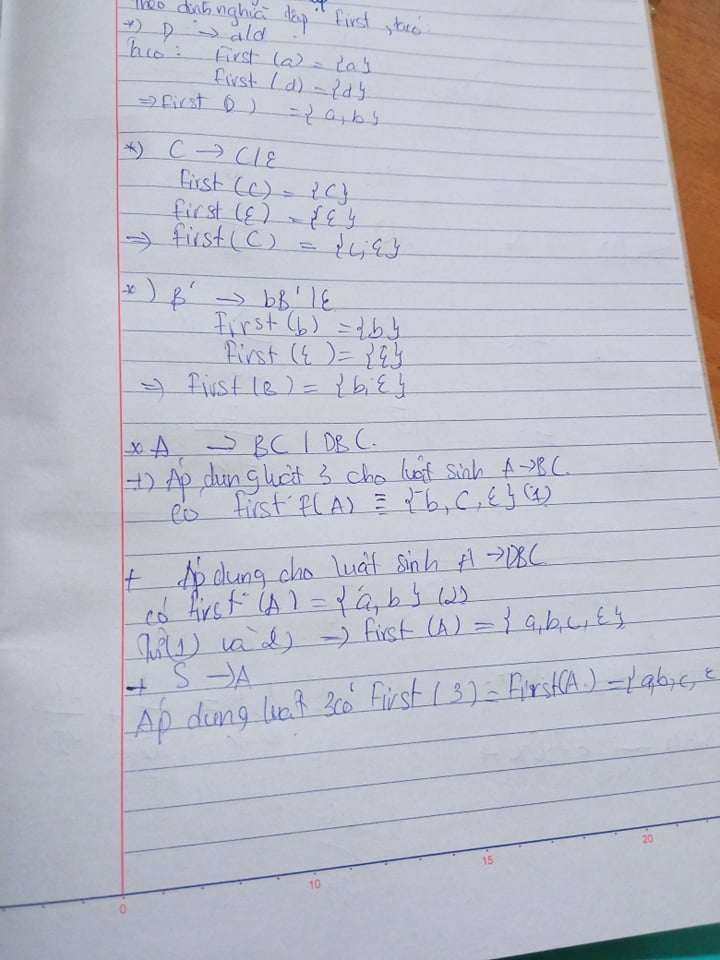 Theo định nghĩa tập first, ta có:
*) D → a|d
ta có: first (a) = {a}
first (d) = {d}
=> first D) = {a, b}
*) C → C|ε
first (C) = {C}
first (ε) = {ε}
=> first (C) = {c, ε}
*) B' → bB'|ε
first (b) = {b}
first (ε) = {ε}
=> first (B) = {b, ε}
* A → BC | DBC.
+) Áp dụng luật 3 cho luật sinh A → BC.
có first F(A) ≡ {b, C, ε} (1)
+ Áp dụng cho luật sinh A → DBC
có first (A) = {a, b} (2)
Từ (1) và 2) => first (A) = {a, b, c, ε}
+ S → A
Áp dụng luật 3 có First (3) = First(A) = {a,b, c, ε
0 10 15 20